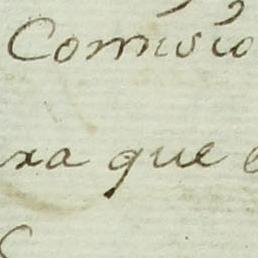 Comisio
ra que